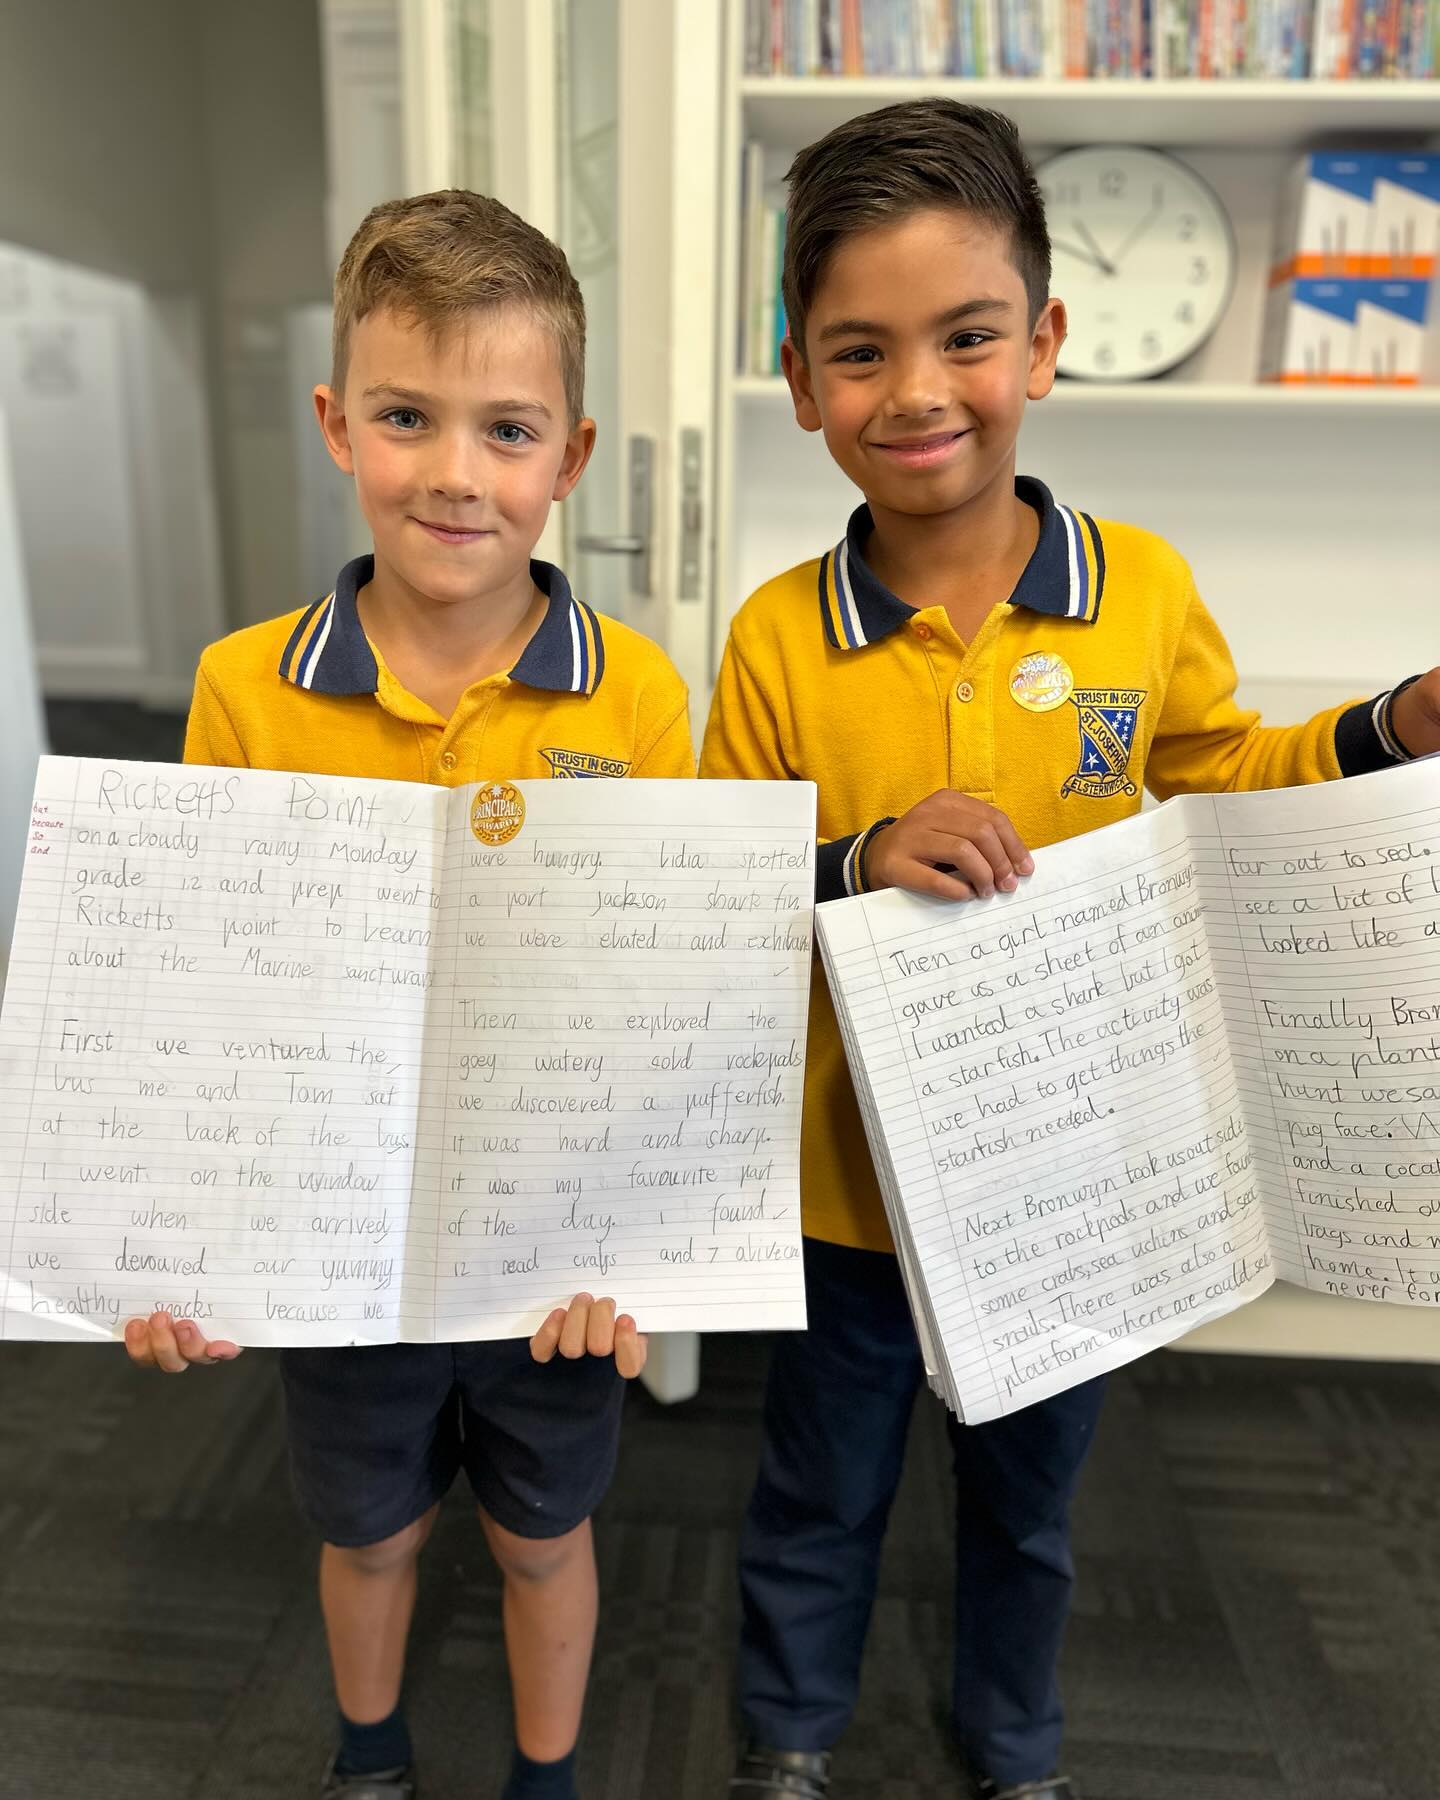 Ricketts Point
but
because
so
and
on a cloudy rainy Monday
grade 12 and prep went to
Ricketts point to learn
about the Marine
First we ventured the
bus me and Tom sat
at the back of the bus.
I went on the window
side when we arrived
we devoured our yummy
healthy snacks because we
PRINCIPAL'S
AWARD
were hungry. Lidia spotted
a port Jackson shark fin.
we were elated and
Then we explored the
goey watery cold rockpools
we discovered a pufferfish.
it was hard and sharp.
it was my favourite part
of the day. I found
12 dead crabs and 7 alive
PRINCIPAL'S
AWARD
TRUST IN GOD
TRUST IN GOD
ST. JOSEPH'S
ELSTERNWICK
Then a girl named Bronwyn
gave us a sheet of an
I wanted a shark but I got
a starfish. The activity was
we had to get things the
starfish needed.
Next Bronwyn took us outside
to the rockpools and we
some crabs, sea uchins and sea
snails. There was also a
platform where we could see
far out to sea.
see a bit of
looked like a
Finally
on a plant
hunt we
pig face.
and a
finished
bags and
home. It
never
11 12 1
2
3
4
5
6